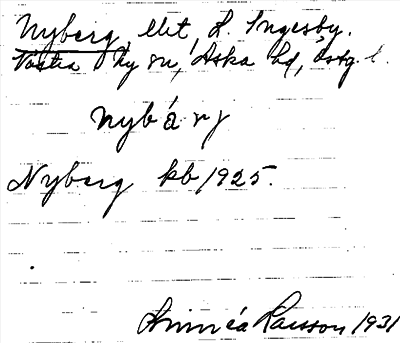 Nyberg, Ut, L. Ingesby.
Västra Ny sn, Aska hd, Östg. l.
nybárj
Nyberg kb 1925.
Linnéa Larsson 1931